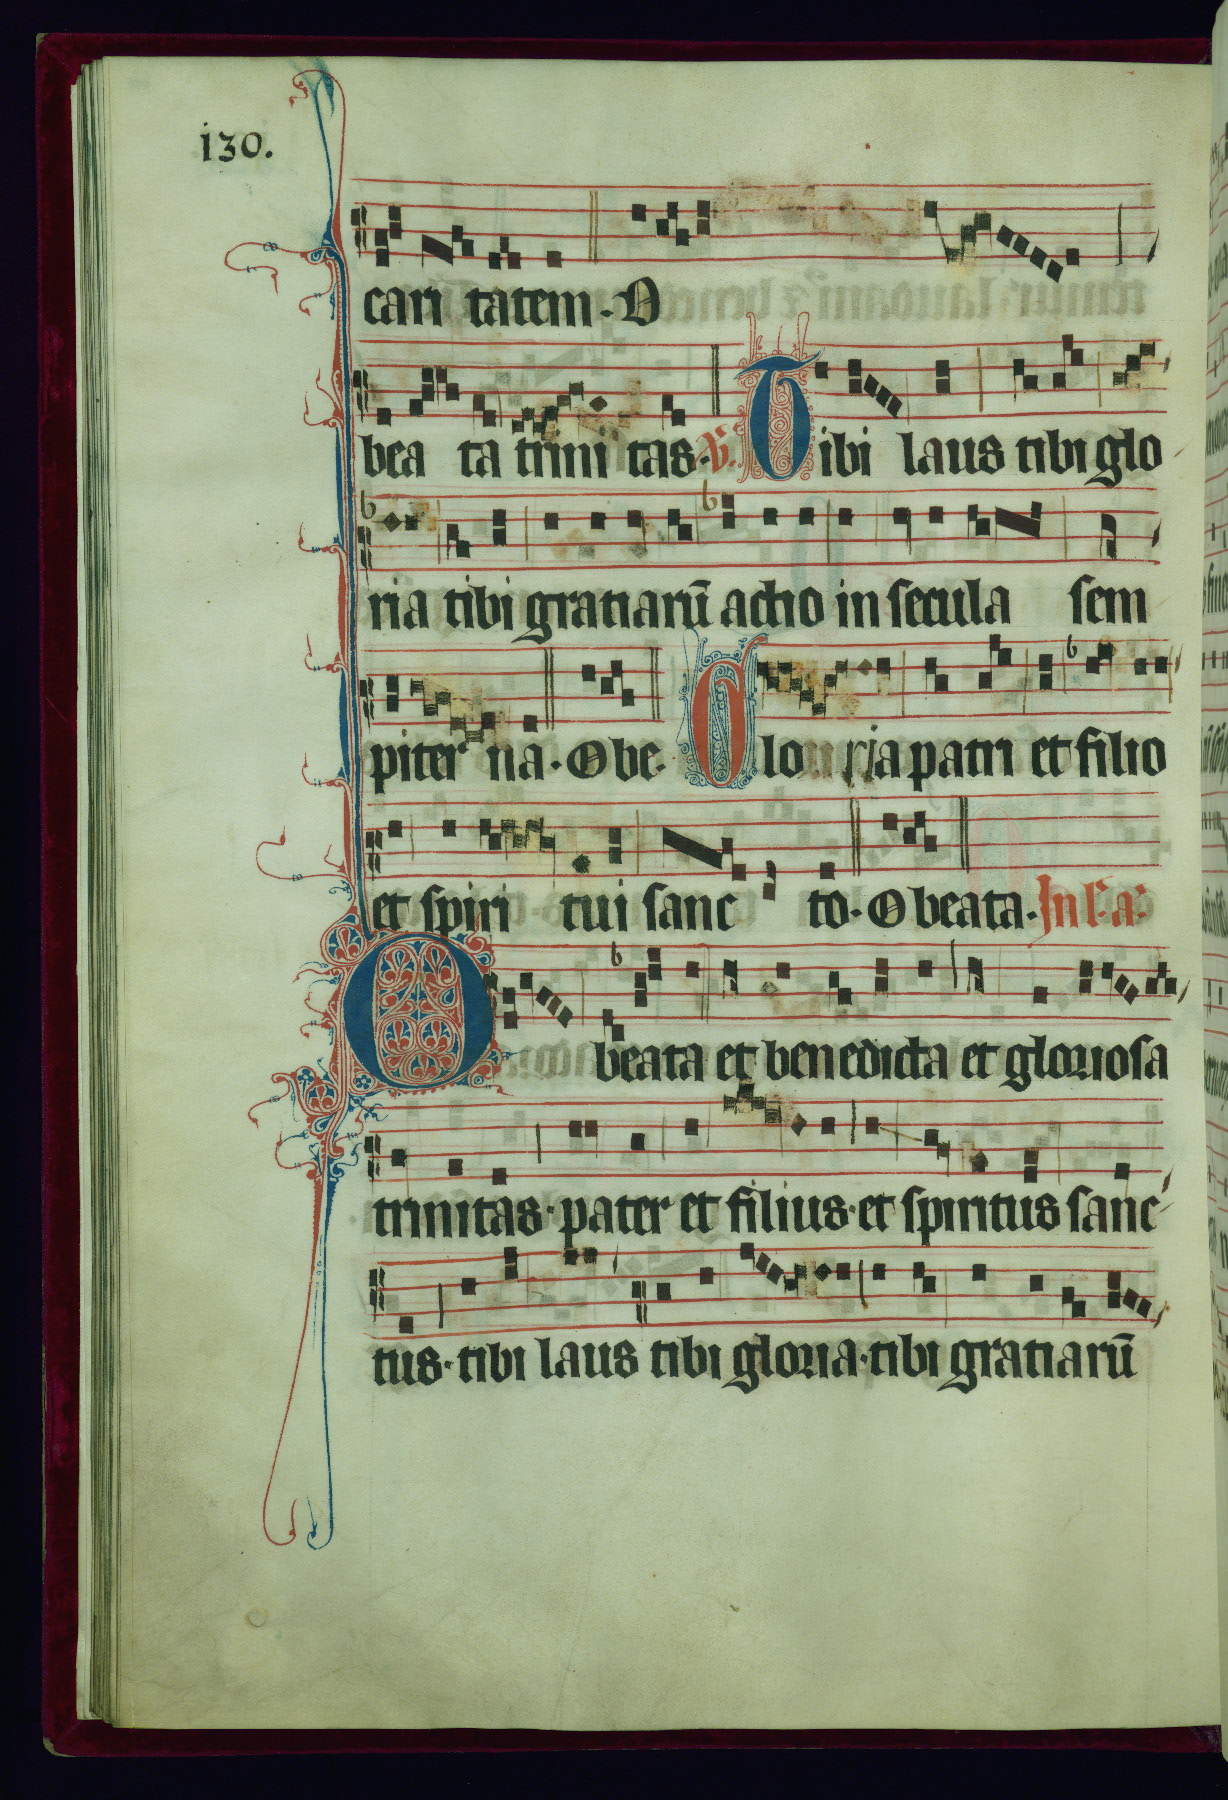 i30.
cari tatem. O
bea ta trini tas. V. Tibi laus tibi glo
ria tibi gratiarū actio in secula sem
piter na. O be. Glo ria patri et filio
et spiri tui sanc to. O beata. In l'. a.
O beata et benedicta et gloriosa
trinitas. pater et filius. et spiritus sanc
tus. tibi laus tibi gloria. tibi gratiarū